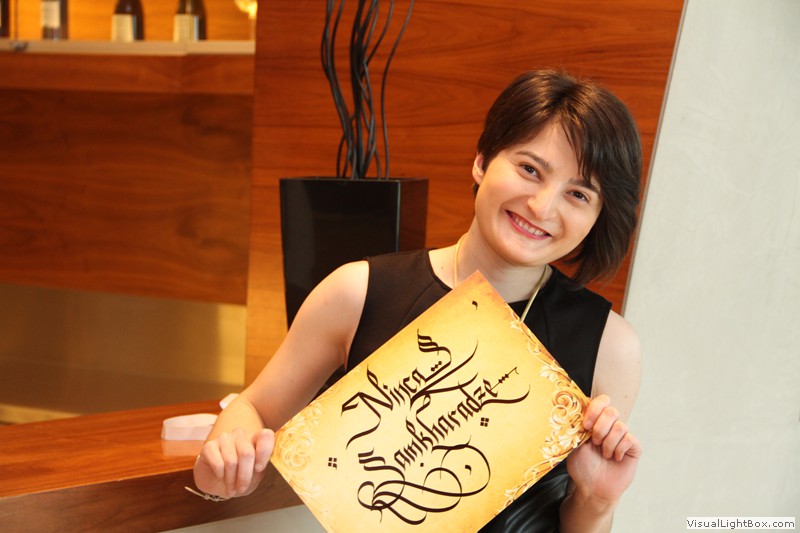 Ninca
Samkharadze
VisualLightBox.com